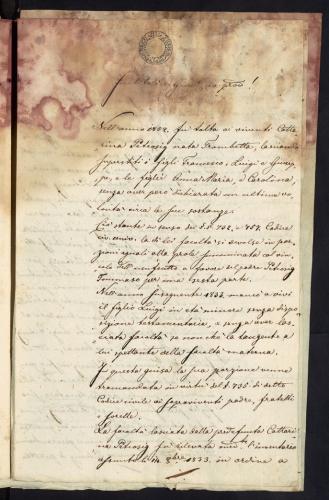 Nell'anno 1832 fu tolta ai viventi Catta
rina Petrossig nata Trombetta, lasciando
superstiti i figli Francesco, Luigi e Giusep
pe, e le figlie Anna Maria, e Carolina
senza aver però dichiarata un'ultima vo
lontà circa le sue sostanze.
Ciò stante in senso dei §.§. 732, e 757. Codice
civ. univ. la di lei facoltà si devolse in por
zioni eguali alla prole summenzionata col vin
colo dell'usufrutto a favore del padre Petrossig
Tommaso per una sesta parte.
Nell'anno susseguente 1833 mancò a vivi
il figlio Luigi in età minore senza dispo
sizione testamentaria, e senza aver las
ciata facoltà se non che la tangente a
lui spettante della facoltà materna.
In questa guisa la sua porzione venne
tramandata in virtù del §. 735 di detto
Codice civile ai sopraviventi padre, fratelli
e sorelle.
La facoltà lasciata della prefunta Cattari
na Petrossig fu rilevata l'inventario
assunto li 1833, in ordine a